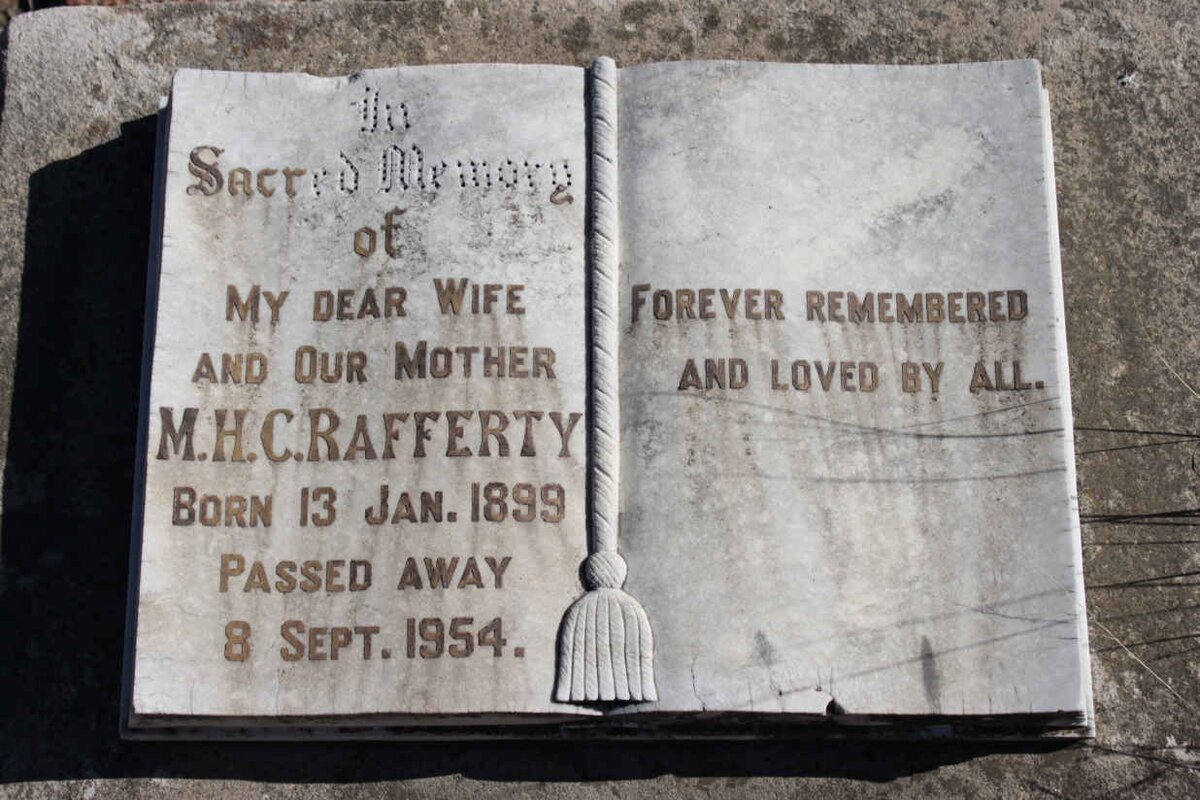 In
Sacred Memory
of
My dear Wife
and Our Mother
M.H.C. Rafferty
Born 13 Jan. 1899
Passed away
8 Sept. 1954.
Forever remembered
and loved by all.